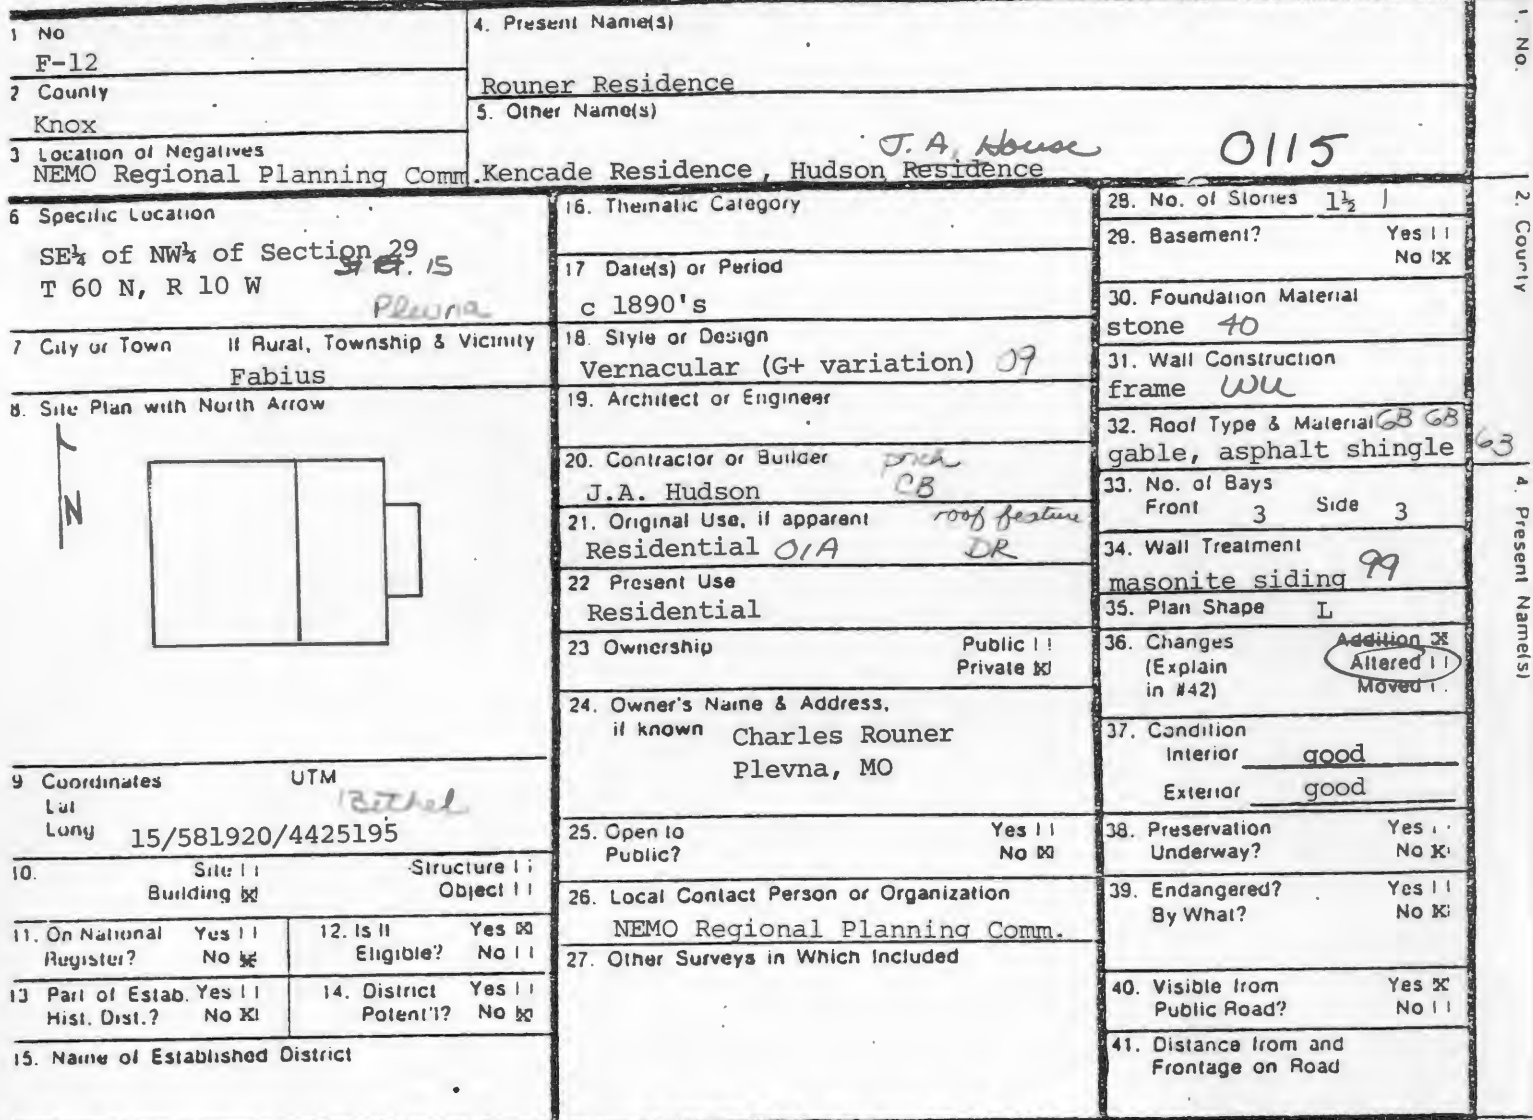 1 No
F-12
2 County
Knox
3 Location of Negatives
NEMO Regional Planning Comm.
4. Present Name(s)
Rouner Residence
5. Other Name(s)
J.A. House 0115
Kencade Residence, Hudson Residence
6 Specific Location
SE¼ of NW¼ of Section 29
15
T 60 N, R 10 W
Plevna
7 City or Town If Rural, Township & Vicinity
Fabius
8. Site Plan with North Arrow
N
9 Coordinates UTM
Lat Bethel
Long 15/581920/4425195
10. Site Structure
Building X Object
11. On National Yes
Register? No X
12. Is It Yes X
Eligible? No
13 Part of Estab. Yes
Hist. Dist.? No X
14. District Yes
Potent'l? No X
15. Name of Established District
16. Thematic Category
17 Date(s) or Period
c 1890's
18. Style or Design
Vernacular (G+ variation) 09
19. Architect or Engineer
20. Contractor or Builder porch
J.A. Hudson CB
21. Original Use, if apparent roof festure
Residential 01A DR
22 Present Use
Residential
23 Ownership Public
Private X
24. Owner's Name & Address,
if known Charles Rouner
Plevna, MO
25. Open to Yes
Public? No X
26. Local Contact Person or Organization
NEMO Regional Planning Comm.
27. Other Surveys in Which Included
28. No. of Stories 1½
29. Basement? Yes
No X
30. Foundation Material
stone 40
31. Wall Construction
frame WU
32. Roof Type & Material GB GB
gable, asphalt shingle 63
33. No. of Bays
Front 3 Side 3
34. Wall Treatment
masonite siding 99
35. Plan Shape L
36. Changes Addition X
(Explain Altered
in #42) Moved
37. Condition
Interior good
Exterior good
38. Preservation Yes
Underway? No X
39. Endangered? Yes
By What? No X
40. Visible from Yes X
Public Road? No
41. Distance from and
Frontage on Road
1. No.
2. County
4. Present Name(s)